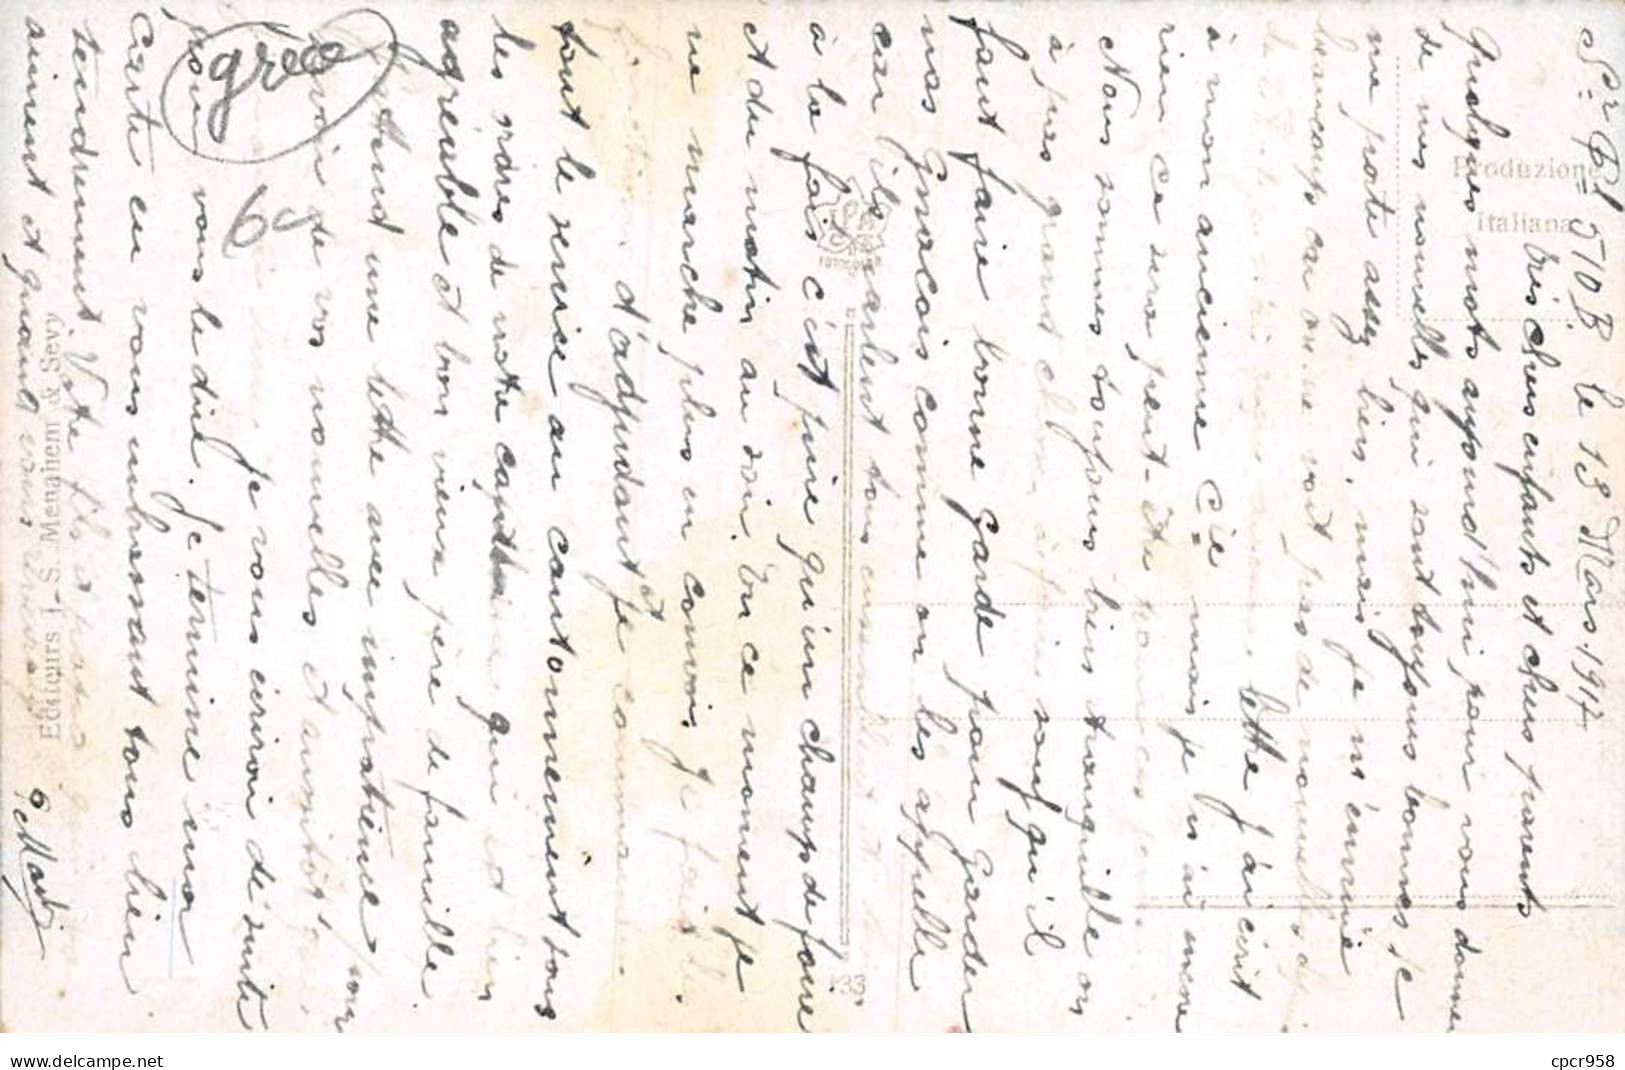 Sr Pl 510 B le 13 Mars 1917
très chers enfants et chers parents
quelques mots aujourd'hui pour vous donner
de mes nouvelles qui sont toujours bonnes je
me porte assez bien, mais je m'ennuie
beaucoup car on ne voit pas de nouvelles
lette j'ai écrit
à mon ancienne Cie mais je n'ai
rien ce sera peut-être
Nous sommes toujours bien tranquille on
à pas grand chose à faire sauf qu'il
faut faire bonne garde pour garder
nos Gracois comme on les appelle
car ils parlent tous
à la fois c'est pire qu'un champ de foire
et du matin au soir. En ce moment je
ne marche plus en convoi, je fais
fonction d'adjudant et je commande
tout le service au cantonnement sous
les ordres de notre capitaine qui est bien
agréable et bon vieux père de famille
J'attend une lette avec impatience pour
avoir de vos nouvelles et aussitôt
je vous écrirai de suite
pour vous le dire. Je termine ma
Carte en vous embrassant tous bien
tendrement Votre fils et
aiment et
grec
60
Produzione
Italiana
Editeurs J. S. Menahem & Sevy
133
cpcr958